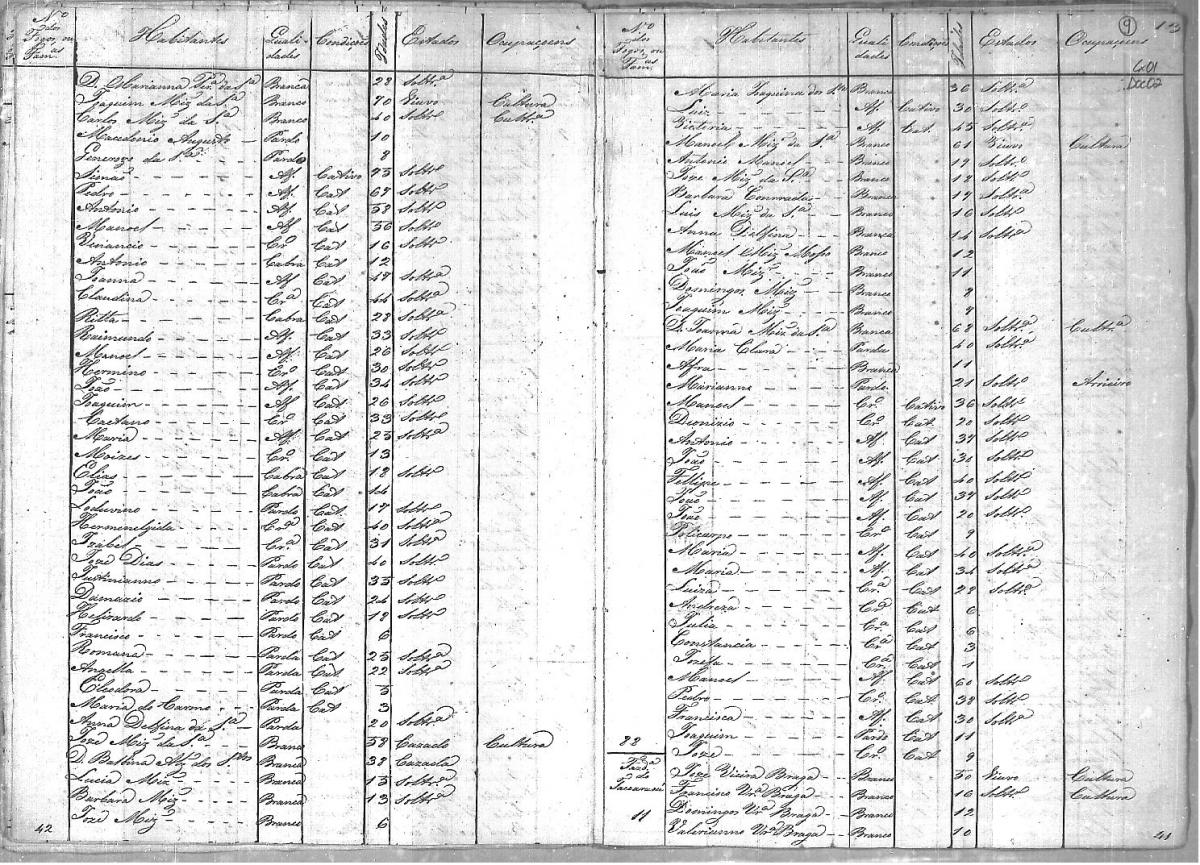 Nº dos Fogos, ou Famas. Habitantes Qualidades Condições Idades Estados Ocupaçoens
D. Marianna da Sª Branca 28 Soltrª
Joaquim Mizˢ da Sª Branco 70 Viuvo Cultura
Carlos Mizˢ da Sª Branco 40 Soltrº Cultrª
Macedonio Augusto Pardo 10
da Sª Pardo 8
Af. Cativo 73 Soltrº
Pedro Af. Cat 67 Soltrº
Antonio Af. Cat 58 Soltrº
Manoel Af Cat 56 Soltrº
Venancio Crº Cat 16 Soltrº
Antonio Cabra Cat 12
Joanna Af Cat 47 Soltrª
Claudina Crª Cat 44 Soltrª
Ritta Cabra Cat 28 Soltrª
Raimundo Af. Cat 33 Soltrº
Manoel Af. Cat 26 Soltrº
Hermino Crº Cat 30 Soltrº
João Af. Cat 34 Soltrº
Joaquim Af Cat 26 Soltrº
Caetano Crº Cat 33 Soltrº
Maria Af. Cat 25 Soltrª
Moizes Crº Cat 13
Elias Cabra Cat 18 Soltrº
João Cabra Cat 14
Ludovino Pardo Cat. 17 Soltrº
Hermenelgida Crª Cat 40 Soltrª
Izabel Crª Cat 31 Soltrª
Joze Dias Pardo Cat 40 Soltrº
Justinianno Pardo Cat 35 Soltrº
Damazio Pardo Cat 24 Soltrº
Pardo Cat 18 Soltrº
Francisco Pardo Cat 6
Romana Parda Cat 25 Soltrª
Angella Parda Cat 22 Soltrª
Eleodora Parda Cat 5
Maria do Carmo Parda Cat 3
Anna Delfina da Sª Parda 20 Soltrª
Joze Mizˢ da Sª Branco 58 Cazado Cultura
D. Balbina dos Stos Branca 38 Cazada
Lucia Mizˢ Branca 15 Soltrª
Barbara Mizˢ Branca 13 Soltrª
Joze Mizˢ Branco 6
42
9
13
G01
Doc02
Nº dos Fogos, ou Famas. Habitantes Qualidades Condições Idades Estados Ocupaçoens
Maria Joaquina dos Stos Branca 36 Soltrª
Luiz Af. Cativo 30 Soltrº
Victoria Af. Cat. 45 Soltrª
Manoel Mizˢ da Sª Branco 61 Viuvo Cultura
Antonio Manoel Branco 19 Soltrº
Joze Mizˢ da Sª Branco 18 Soltrº
Barbara Conrada Branca 17 Soltrª
Luis Mizˢ da Sª Branco 16 Soltrº
Anna Delfina Branca 14 Soltrª
Manoel Mizˢ Branco 12
João Mizˢ Branco 11
Domingos Mizˢ Branco 8
Joaquim Mizˢ Branco 7
D. Joanna Mizˢ da Sª Branca 68 Soltrª Cultrª
Maria Clara Parda 40 Soltrª
Afra Branca 11
Marianno Pardo 21 Soltrº Arrieiro
Manoel Crº Cativo 36 Soltrº
Dionizio Crº Cat. 20 Soltrº
Antonio Af. Cat 37 Soltrº
João Af. Cat 31 Soltrº
Fellipe Af. Cat 40 Soltrº
João Af. Cat 37 Soltrº
Joze Af. Cat 20 Soltrº
Policarpo Crº Cat 9
Maria Af. Cat 40 Soltrª
Maria Af. Cat 34 Soltrª
Luiza Crª Cat 28 Soltrª
Andreza Crª Cat 6
Julia Crª Cat 6
Constancia Crª Cat 3
Jozefa Crª Cat 1
Manoel Af Cat 60 Soltrº
Pedro Crº Cat. 38 Soltrº
Francisca Af. Cat 30 Soltrª
Joaquim Pardo Cat 11
88 Joze Crº Cat 9
Fazdª do Joze Vieira Braga Branco 50 Viuvo Cultura
Francisco Vrª Braga Branco 16 Soltrº Cultura
11 Domingos Vrª Braga Branco 12
Valerianno Vrª Braga Branco 10
41